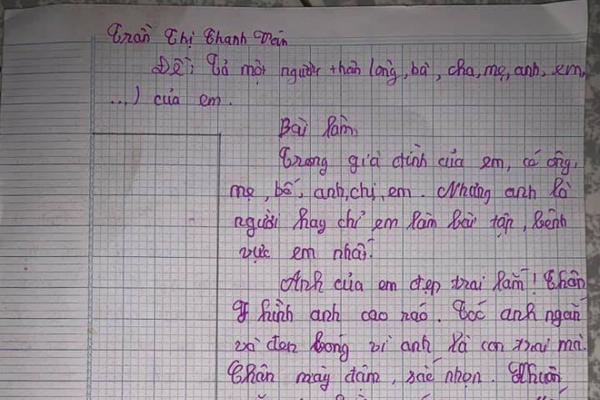 Trần Thị Thanh Vân
Đề: Tả một người thân (ông, bà, cha, mẹ, anh, em,
...) của em.
Bài làm
Trong gia đình của em, có ông,
mẹ, bố, anh, chị, em. Nhưng anh là
người hay chỉ em làm bài tập, bênh
vực em nhất.
Anh của em đẹp trai lắm! Thân
hình anh cao ráo. Tóc anh ngắn
và đen bóng vì anh là con trai mà.
Chân mày đậm, sắc nhọn. Khuôn